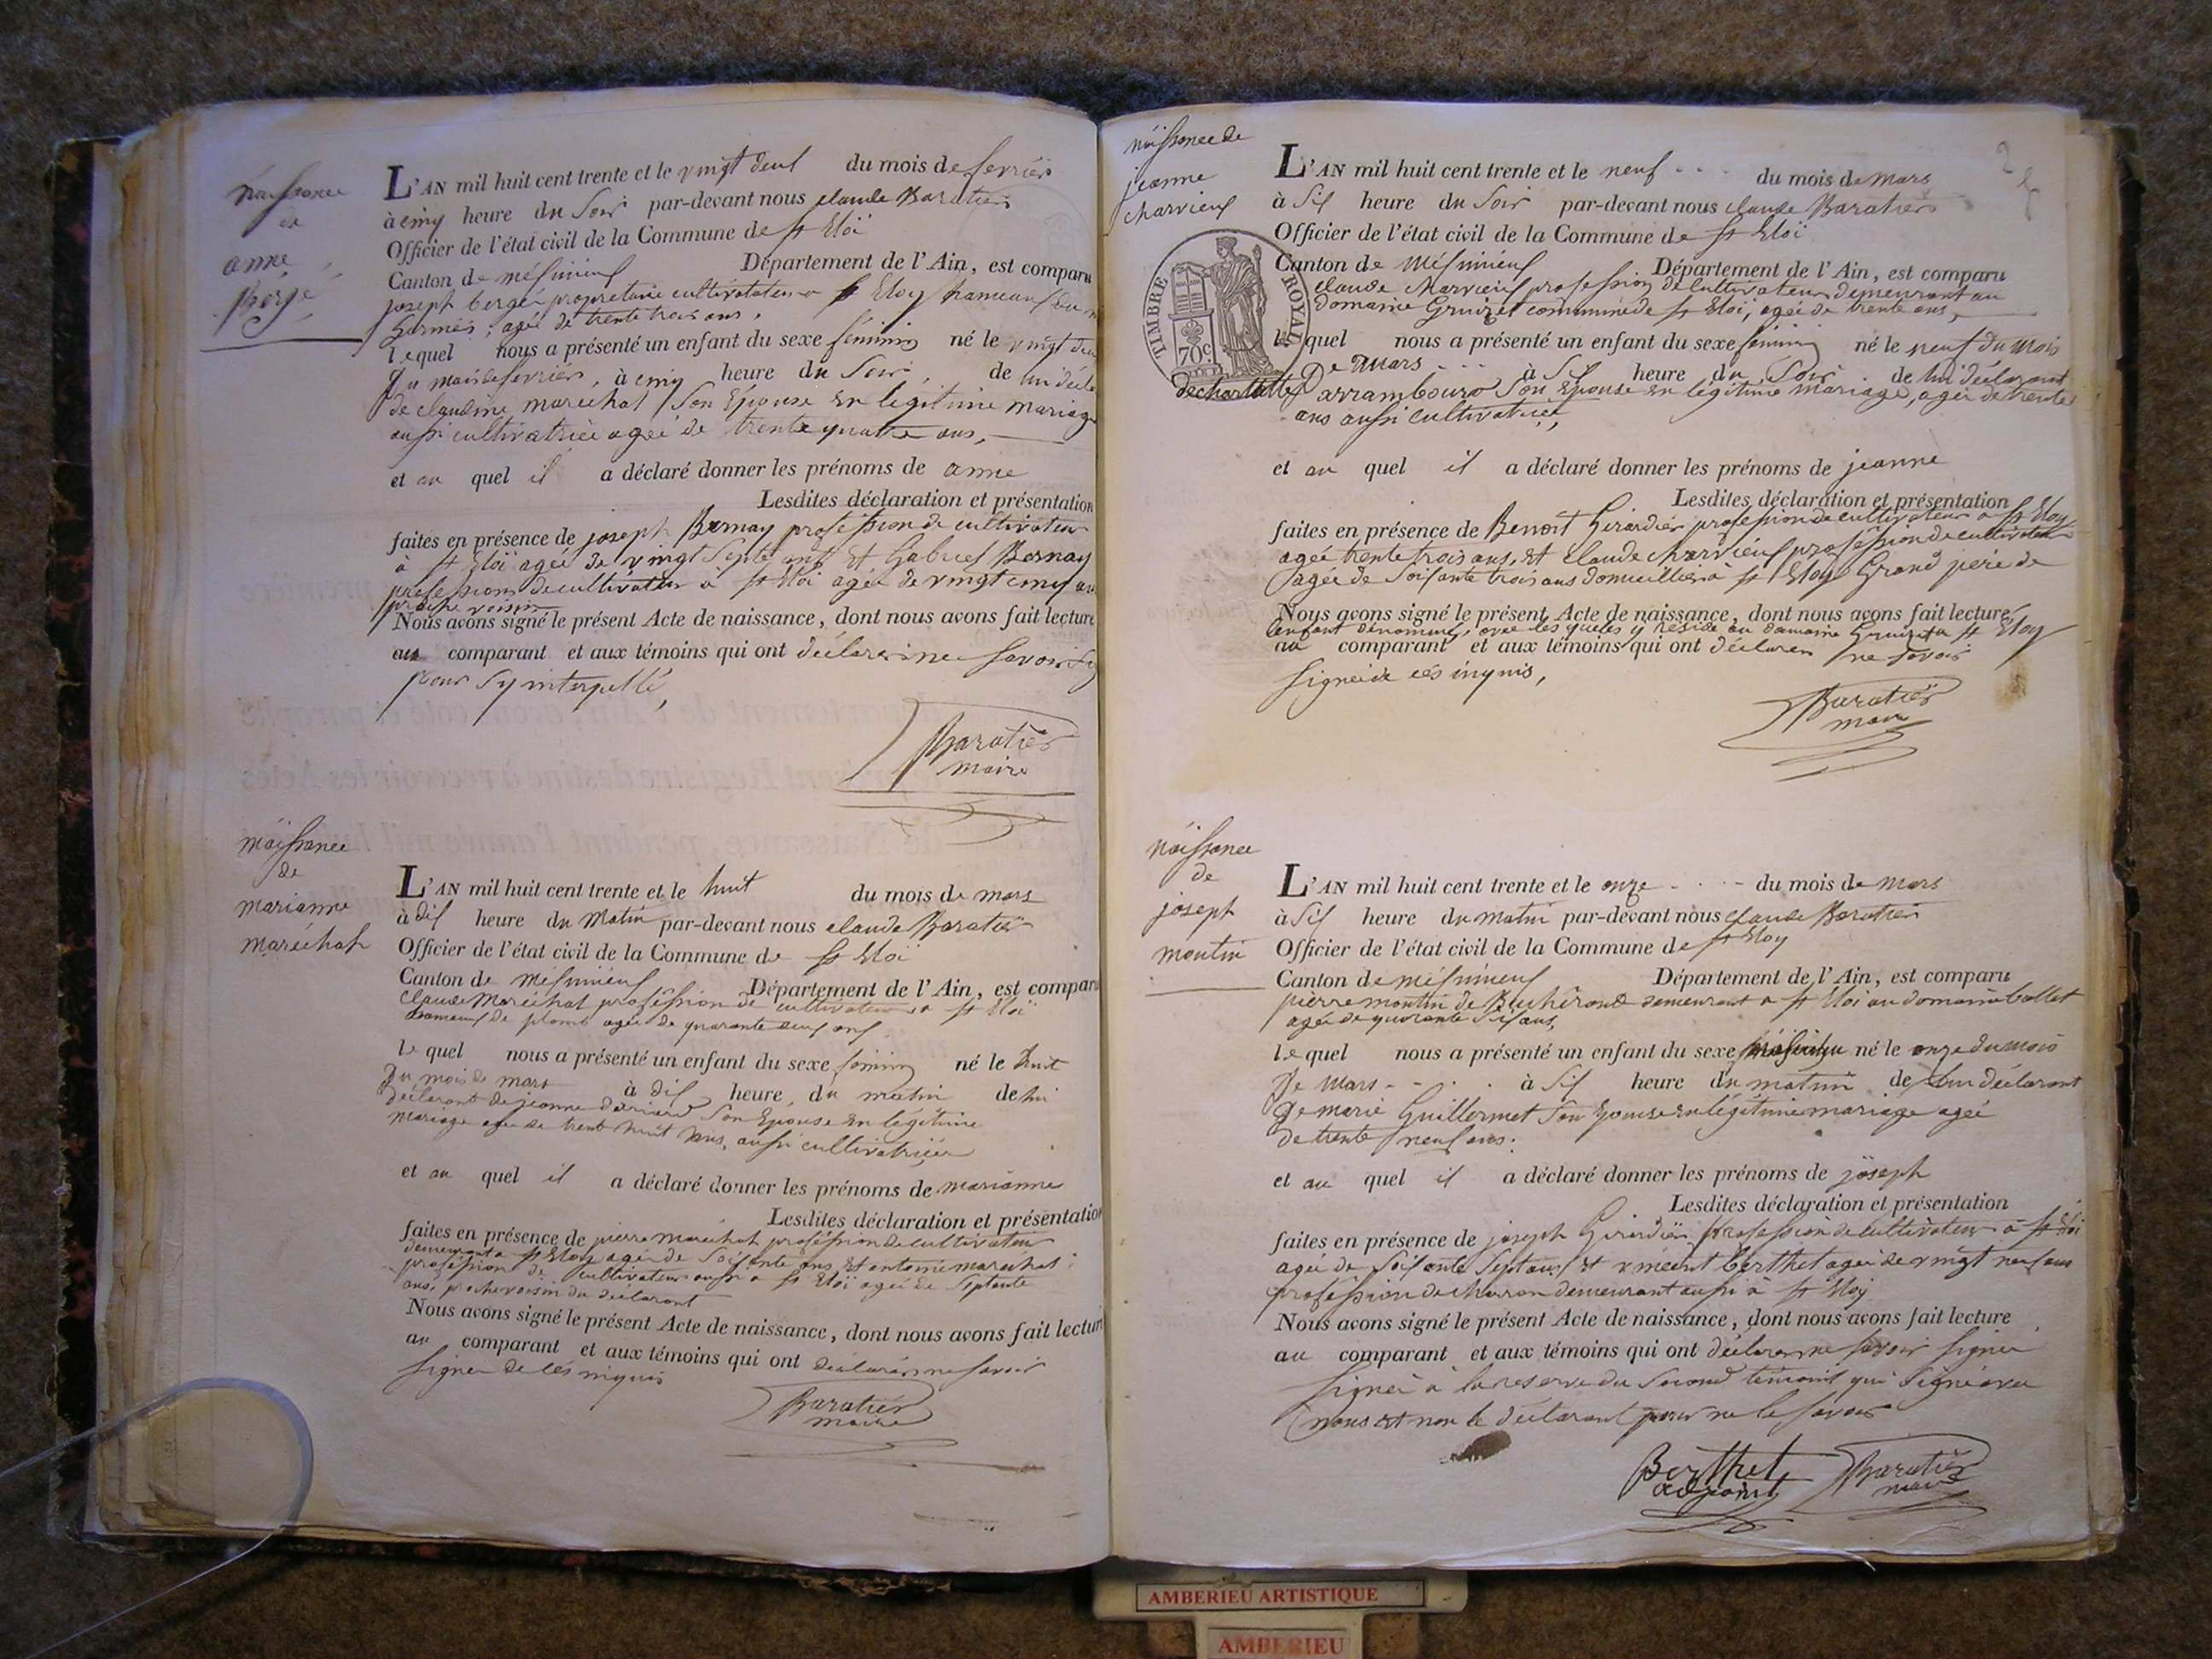 naissance
de
anne
Bergé
L'AN mil huit cent trente et le vingt deux du mois de fevrier
à cinq heure du Soir par-devant nous claude Baratier
Officier de l'état civil de la Commune de St Eloi
Canton de méximieux Département de l'Ain, est comparu
joseph bergér propretaire cultivatateur a St Eloy hameaux
agée de trente trois ans,
lequel nous a présenté un enfant du sexe féminin né le vingt deux
du mois de fevrier, à cinq heure du Soir, de lui décla
de claudine maréchal Son Épouse en legitime mariage
aussi cultivatrice agée de trente quatre ans,
et au quel il a déclaré donner les prénoms de anne
Lesdites déclaration et présentation
faites en présence de joseph Bernay profession de cultivateur
à St Eloi agée de vingt Septe ans et Gabriel Bernay
profession de cultivateur à St Eloi agée de vingt cinq an
proche voisin
Nous avons signé le présent Acte de naissance, dont nous avons fait lecture
au comparant et aux témoins qui ont déclarer ne Savoir
pour Sy interpellé,
Baratier
maire
naissance
de
marianne
maréchal
L'AN mil huit cent trente et le huit du mois de mars
à dix heure du Matin par-devant nous claude Baratier
Officier de l'état civil de la Commune de St Eloi
Canton de méximieux Département de l'Ain, est comparu
claude Maréchal profession de cultivateur a St Eloi
hameaux de plomb agée de quarante deux ans
lequel nous a présenté un enfant du sexe féminin né le huit
du mois de mars à dix heure du matin de lui
déclarant de jeanne Son Epouse en légitime
mariage agée de trent huit ans, aussi cultivatrice
et au quel il a déclaré donner les prénoms de marianne
Lesdites déclaration et présentation
faites en présence de pierre maréchal profession de cultivateur
demeurant a St Eloy agée de Soixante ans et antoine maréchal
profession de cultivateur aussi a St Eloi agée de Septante
ans, proche voisin du declarant
Nous avons signé le présent Acte de naissance, dont nous avons fait lecture
au comparant et aux témoins qui ont déclarer ne Savoir
Signer de ces inquis
Baratier
maire
naissance de
jeanne
charvieux
TIMBRE ROYAL
70c
L'AN mil huit cent trente et le neuf du mois de mars
à Six heure du Soir par-devant nous claude Baratier
Officier de l'état civil de la Commune de St Eloi
Canton de Méximieux Département de l'Ain, est comparu
claude charvieux profession de cultivateur demeurant au
domaine Gruizet commune de St Eloi, agée de trente ans,
lequel nous a présenté un enfant du sexe féminin né le neuf du mois
de Mars à Six heure du Soir de lui déclarant
de charlotte Darrambouro Son Epouse en légitime mariage, agée de trente
ans aussi cultivatrice,
et au quel il a déclaré donner les prénoms de jeanne
Lesdites déclaration et présentation
faites en présence de Benoit Girardier profession de cultivateur a St Eloy
agée trente trois ans, et claude charvieux profession de cultivateur
agée de Soixante trois ans domicillier à St Eloy Grand pere de
Nous avons signé le présent Acte de naissance, dont nous avons fait lecture
lenfant dénommé, avec les queles y réside au domaine Gruizet a St Eloy
au comparant et aux témoins qui ont déclarer ne Savoir
Signer de ces inquis,
Baratier
maire
naissance
de
joseph
moutin
L'AN mil huit cent trente et le onze du mois de mars
à Six heure du matin par-devant nous claude Baratier
Officier de l'état civil de la Commune de St Eloy
Canton de méximieux Département de l'Ain, est comparu
pierre moutin demeurant a St Eloi au domaine ballet
agée de quarante Six ans,
lequel nous a présenté un enfant du sexe masculin né le onze du mois
de Mars à Six heure du matin de lui déclarant
de marie Guillermet Son Epouse en légitime mariage agée
de trente neuf ans.
et au quel il a déclaré donner les prénoms de joseph
Lesdites déclaration et présentation
faites en présence de joseph Girardier profession de cultivateur à St Eloi
agée de Soixante Sept ans et vincent Berthet agée de vingt neuf ans
profession de charon demeurant aussi à St Eloy
Nous avons signé le présent Acte de naissance, dont nous avons fait lecture
au comparant et aux témoins qui ont déclarer ne Savoir Signer
Signer à la reserve du Second témoint qui Signé avec
nous et non le déclarant pour ne le Savoir
Berthet
adjoint
Baratier
maire
AMBERIEU ARTISTIQUE
AMBERIEU